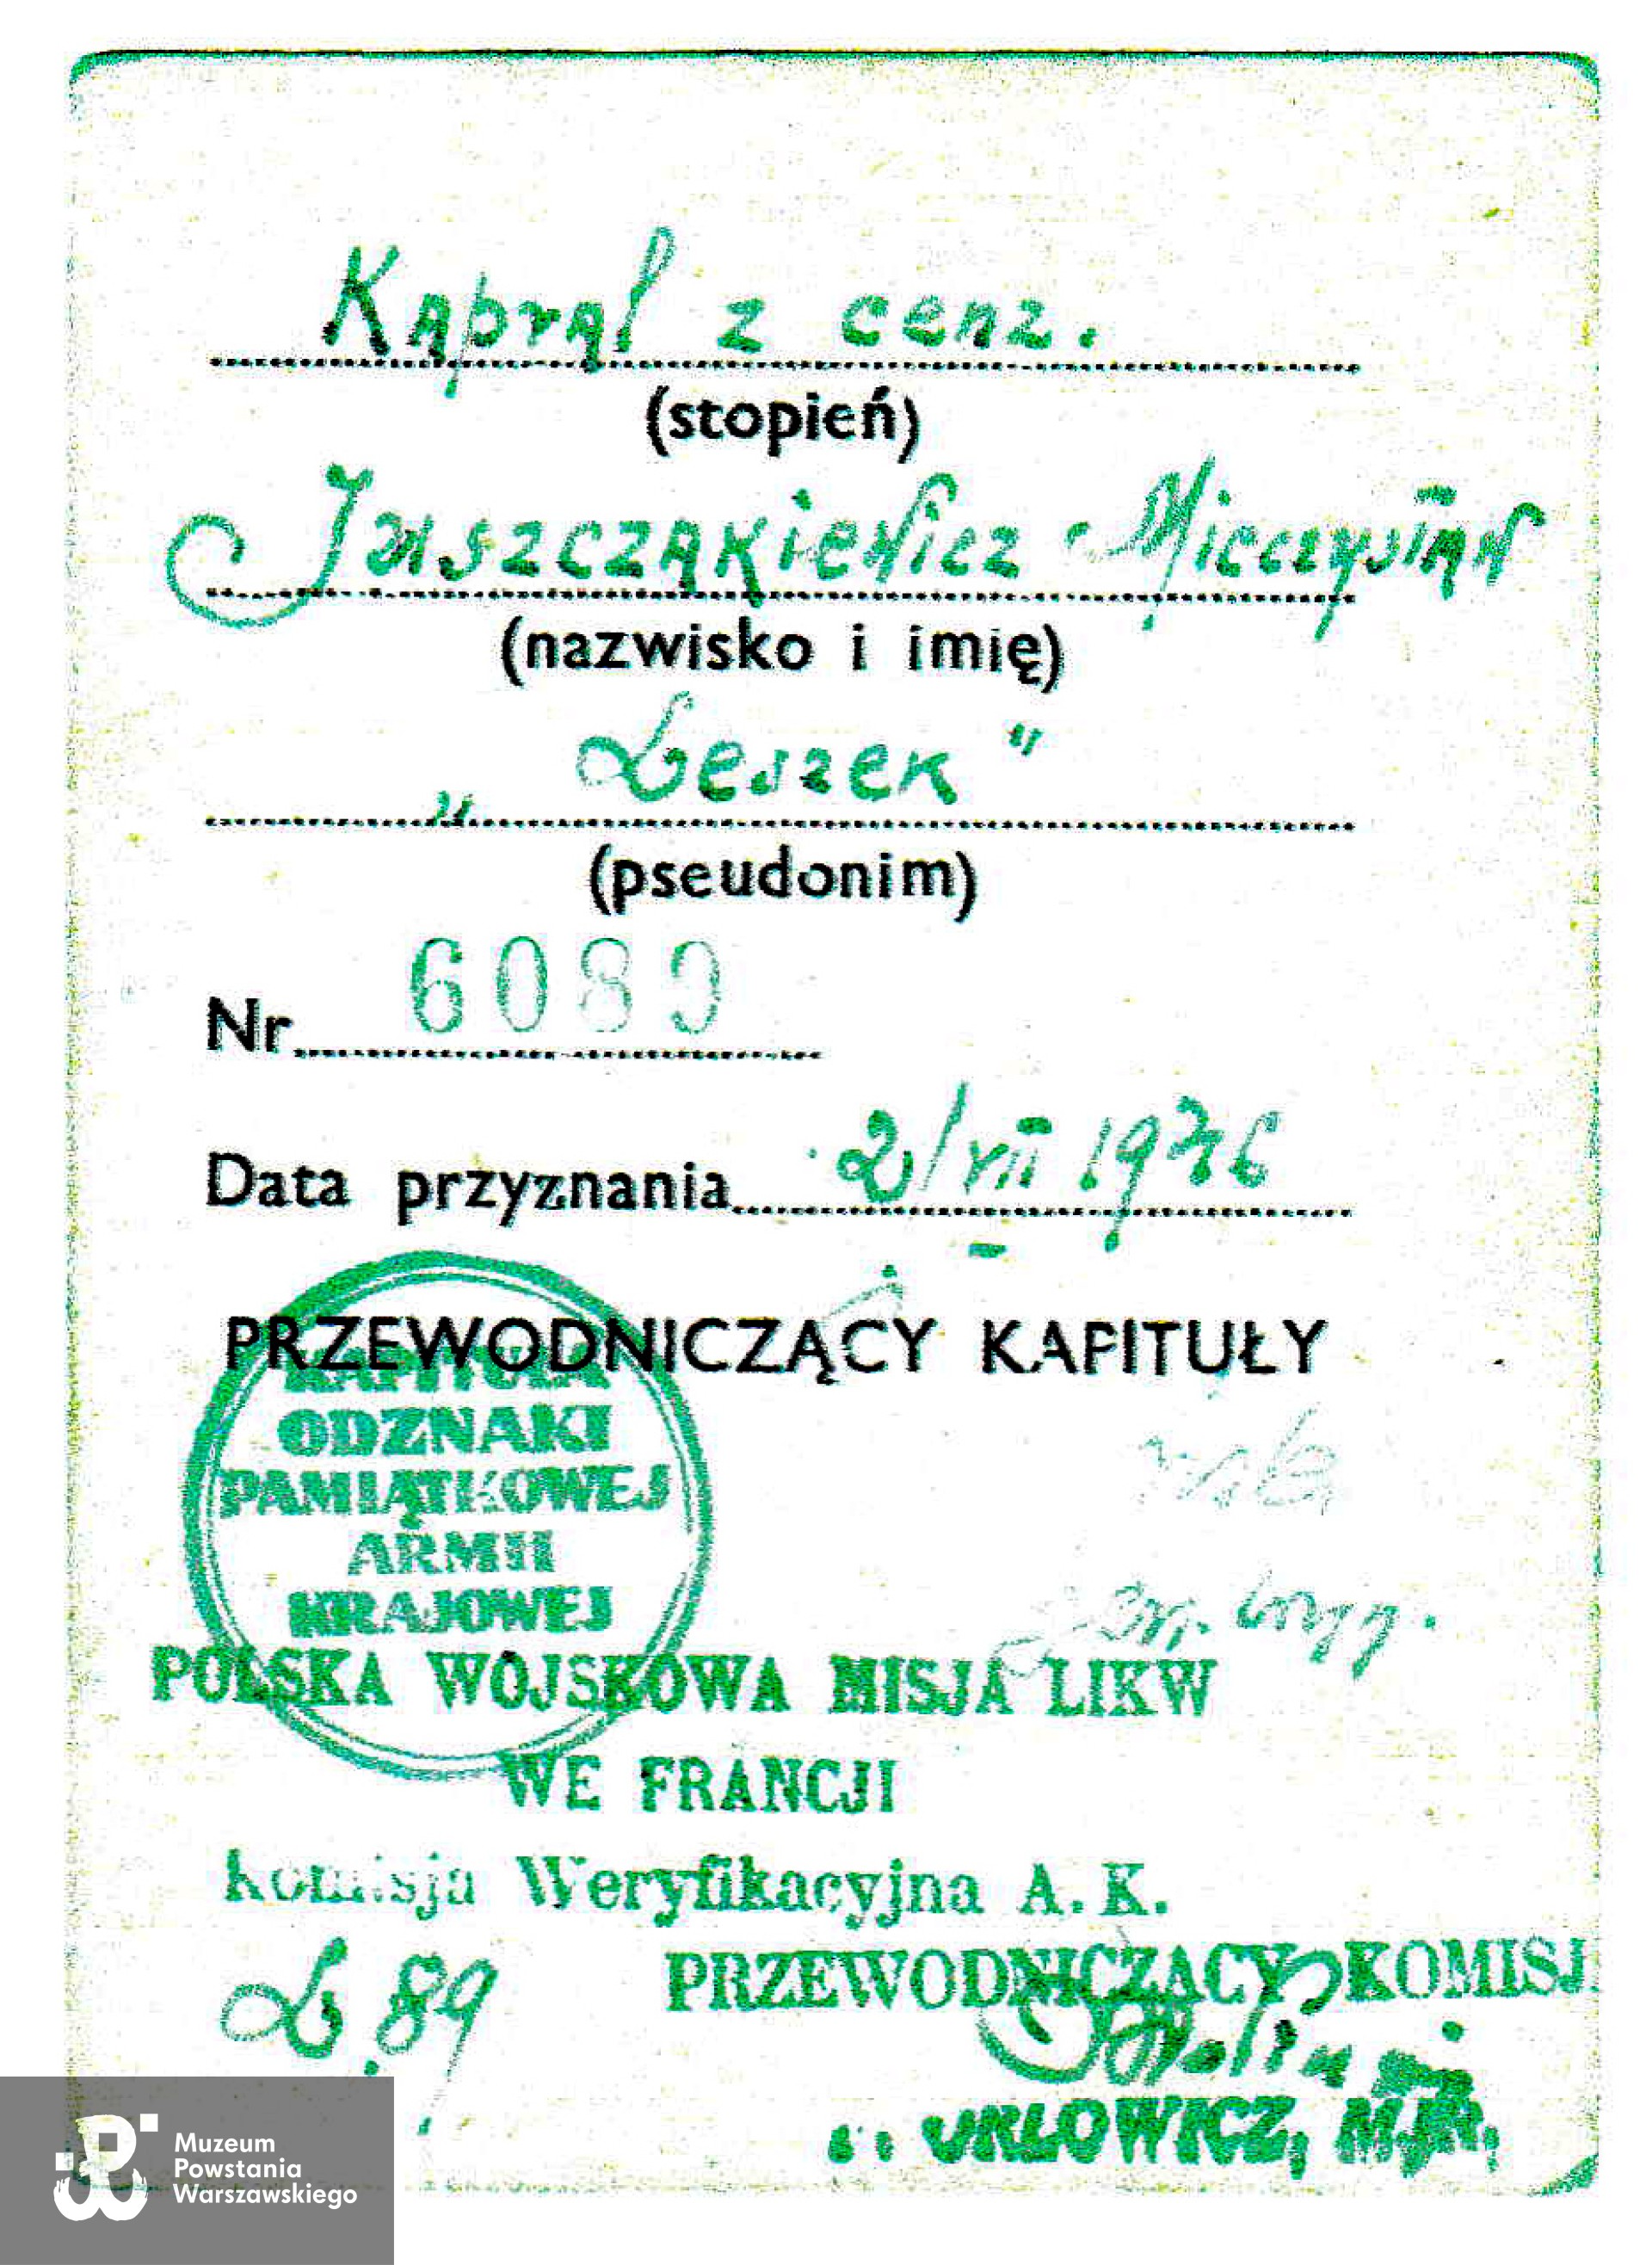 Kapral z cenz.
(stopień)
Juszczakiewicz Mieczysław
(nazwisko i imię)
„Leszek"
(pseudonim)
Nr 6080
Data przyznania 2/VII 1946
PRZEWODNICZĄCY KAPITUŁY
KAPITUŁA
ODZNAKI
PAMIĄTKOWEJ
ARMII
KRAJOWEJ
POLSKA WOJSKOWA MISJA LIKW
WE FRANCJI
Komisja Weryfikacyjna A. K.
L. 89
PRZEWODNICZĄCY KOMISJ
URŁOWICZ, MJR.
Muzeum
Powstania
Warszawskiego